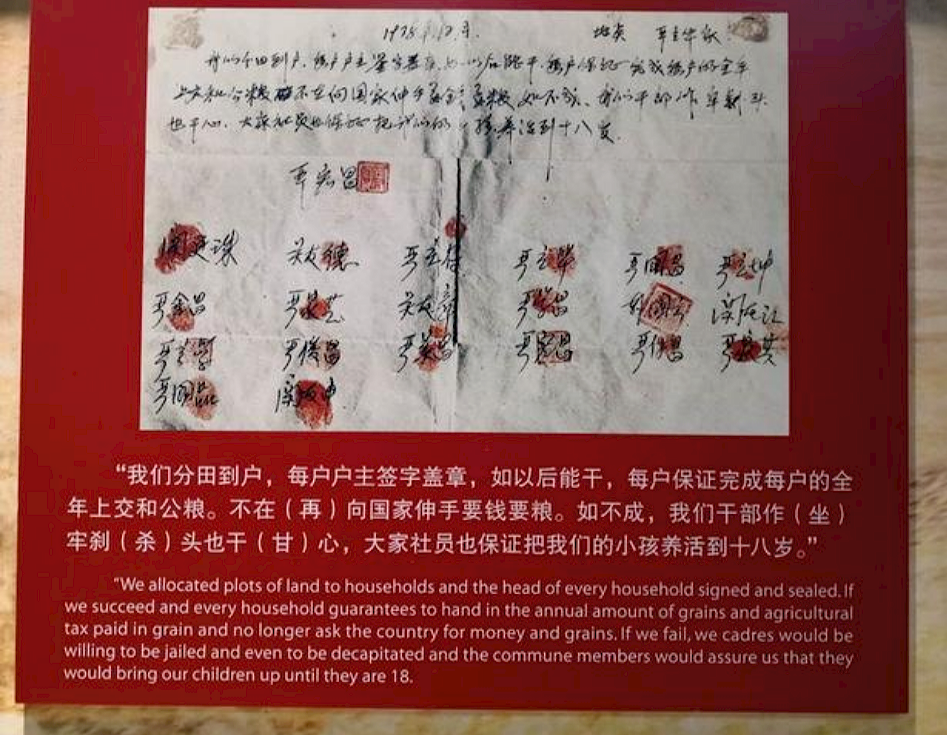 1978.12月. 地点 严立华家
我们分田到户，每户户主签字盖章，如以后能干，每户保证完成每户的全年
上交和公粮 不在向国家伸手要钱要粮，如不成，我们干部作牢刹头
也干心，大家社员也保证把我们的小孩养活到十八岁。
严宏昌
关廷珠 关友德 严立符 严立华 严国昌 严立坤
严金昌 严家芝 关友章 严学昌 韩国云 关友江
严立学 严俊昌 严美昌 严宏昌 严付昌 严家其
严国品 关友申
“我们分田到户，每户户主签字盖章，如以后能干，每户保证完成每户的全
年上交和公粮。不在（再）向国家伸手要钱要粮。如不成，我们干部作（坐）
牢刹（杀）头也干（甘）心，大家社员也保证把我们的小孩养活到十八岁。”
"We allocated plots of land to households and the head of every household signed and sealed. If
we succeed and every household guarantees to hand in the annual amount of grains and agricultural
tax paid in grain and no longer ask the country for money and grains. If we fail, we cadres would be
willing to be jailed and even to be decapitated and the commune members would assure us that they
would bring our children up until they are 18.